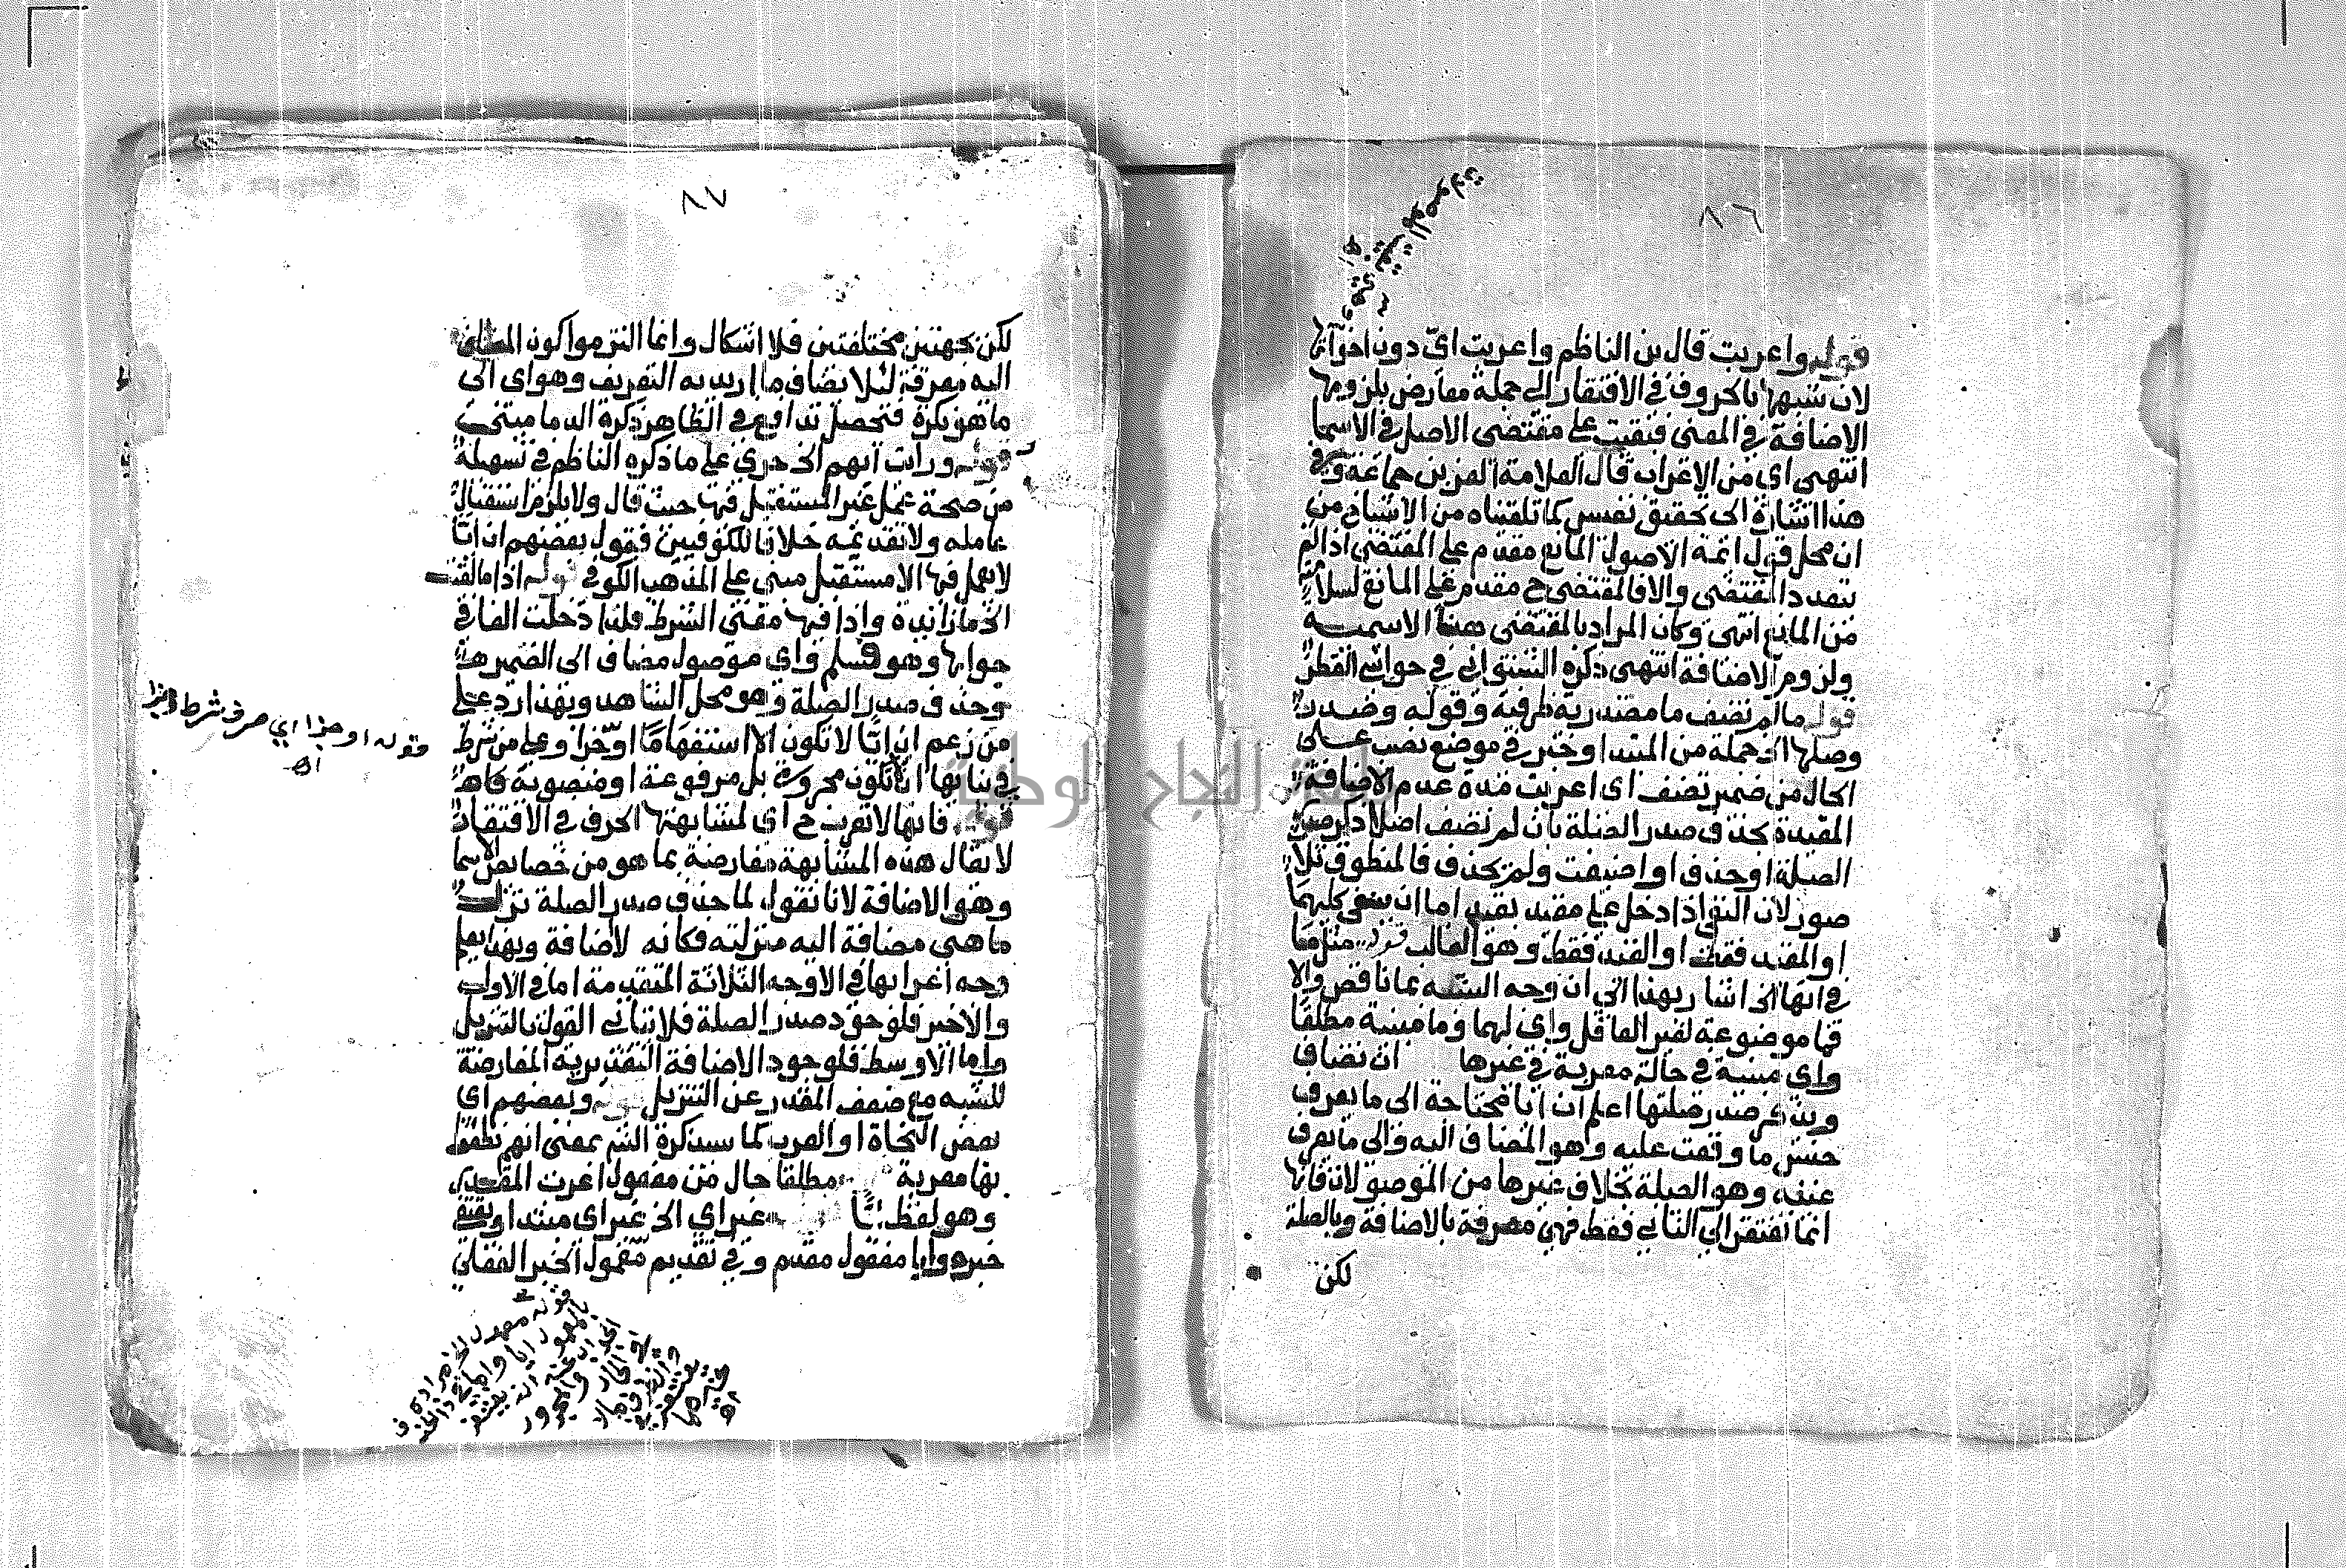 ٨٦
وهي بقيت الموصولات
اه
قوله واعربت قال بن الناظم واعربت اي دون اخواتها
لان شبهها بالحروف في الافتقار الى جملة معارض بلزومها
الاضافة في المعنى فبقيت على مقتضى الاصل في الاسما
انتهى اي من الاعراب قال العلامة العز بن جماعة وفي
هذا اشارة الى تحقيق نفيس كما تلقناه من الاشياخ من
ان محل قول ائمة الاصول المانع مقدم على المقتضى اذا لم
يتعدد المقتضى والا فالمقتضى ح مقدم على المانع لسلامته
من المانع انتهى وكان المراد بالمقتضى هنا الاسمية
ولزوم الاضافة انتهى ذكره الشنواني في حواشي القطر
قوله ما لم تضف ما مصدرية ظرفية وقوله وصدر
وصلها الخ جملة من المبتدا وخبر في موضع نصب على
الحال من ضمير تضف اي اعربت مدة عدم الاضافة
المقيدة بحذف صدر الصلة بان لم تضف اصلا ذكر صدر
الصلة او حذف او اضيفت ولم يحذف فالمنطوق ثلاث
صور لان النفي اذا دخل على مقيد بقيد اما ان ينفي كليهما
او المقيد فقط او القيد فقط وهو الغالب قوله مثل ما
في انها الخ اشار بهذا الى ان وجه الشبه بما ناقص والا
فما موضوعة لغير العاقل واي لهما وما مبنية مطلقا
واي مبنية في حالة معربة في غيرها ان تضاف
ويذكر صدر صلتها اعلم ان ايا محتاجة الى ما يعرف
جنس ما وقعت عليه وهو المضاف اليه والى ما يعرف
عينه وهو الصلة بخلاف غيرها من الموصولات فانها
انما تفتقر الى الثاني فقط فهي معرفة بالاضافة وبالصلة
لكن
٨٧
لكن بجهتين مختلفتين فلا اشكال وانما التزموا كون المضاف
اليه معرفة لئلا يضاف ما اريد به التعريف وهو اي الى
ما هو نكرة فتحصل تدافع في الظاهر ذكره الدماميني
قوله ورايت ايهم الخ جرى على ما ذكره الناظم في تسهيله
من صحة عمل غير المستقبل فيها حيث قال ولا يلزم استقبال
عامله ولا تقديمه خلافا للكوفيين فقول بعضهم ان ايا
لا يعمل فيها الا مستقبل مبني على المذهب الكوفي قوله اذا ما لقيت
الخ ما زائدة واذا فيها معنى الشرط فلذا دخلت الفا في
جوابها وهو فسلم واي موصول مضاف الى الضمير هنا
وحذف صدر الصلة وهو محل الشاهد وبهذا رد على
من زعم ان ايا لا تكون الا استفهاما او جزا وعلى من شرط
في بنائها ان لا تكون مجرورة بل مرفوعة او منصوبة كما هنا
قوله فانها لا تعرب ح اي لمشابهتها الحرف في الافتقار
لا يقال هذه المشابهة معارضة بما هو من خصائص الاسما
وهو الاضافة لانا نقول لما حذف صدر الصلة نزل
ما هي مضافة اليه منزلته فكانه لا اضافة وبهذا يعلم
وجه اعرابها في الاوجه الثلاثة المتقدمة اما في الاول
والاخير فلوجود صدر الصلة فلا يتاتى القول بالتنزيل
واما الاوسط فلوجود الاضافة التقديرية المعارضة
للشبه مع ضعف المقدر عن التنزيل قوله وبعضهم اي
بعض النحاة او العرب كما سيذكره الش بمعنى انهم نطقوا
بها معربة مطلقا حال من مفعول اعرب المقدر
وهو لفظ ايا غير اي الخ غير اي مبتدا ويقتفي
خبره وايا مفعول مقدم وفي تقديم معمول الخبر الفعلي
قوله او جزا اي حرف شرط وجزا
اه